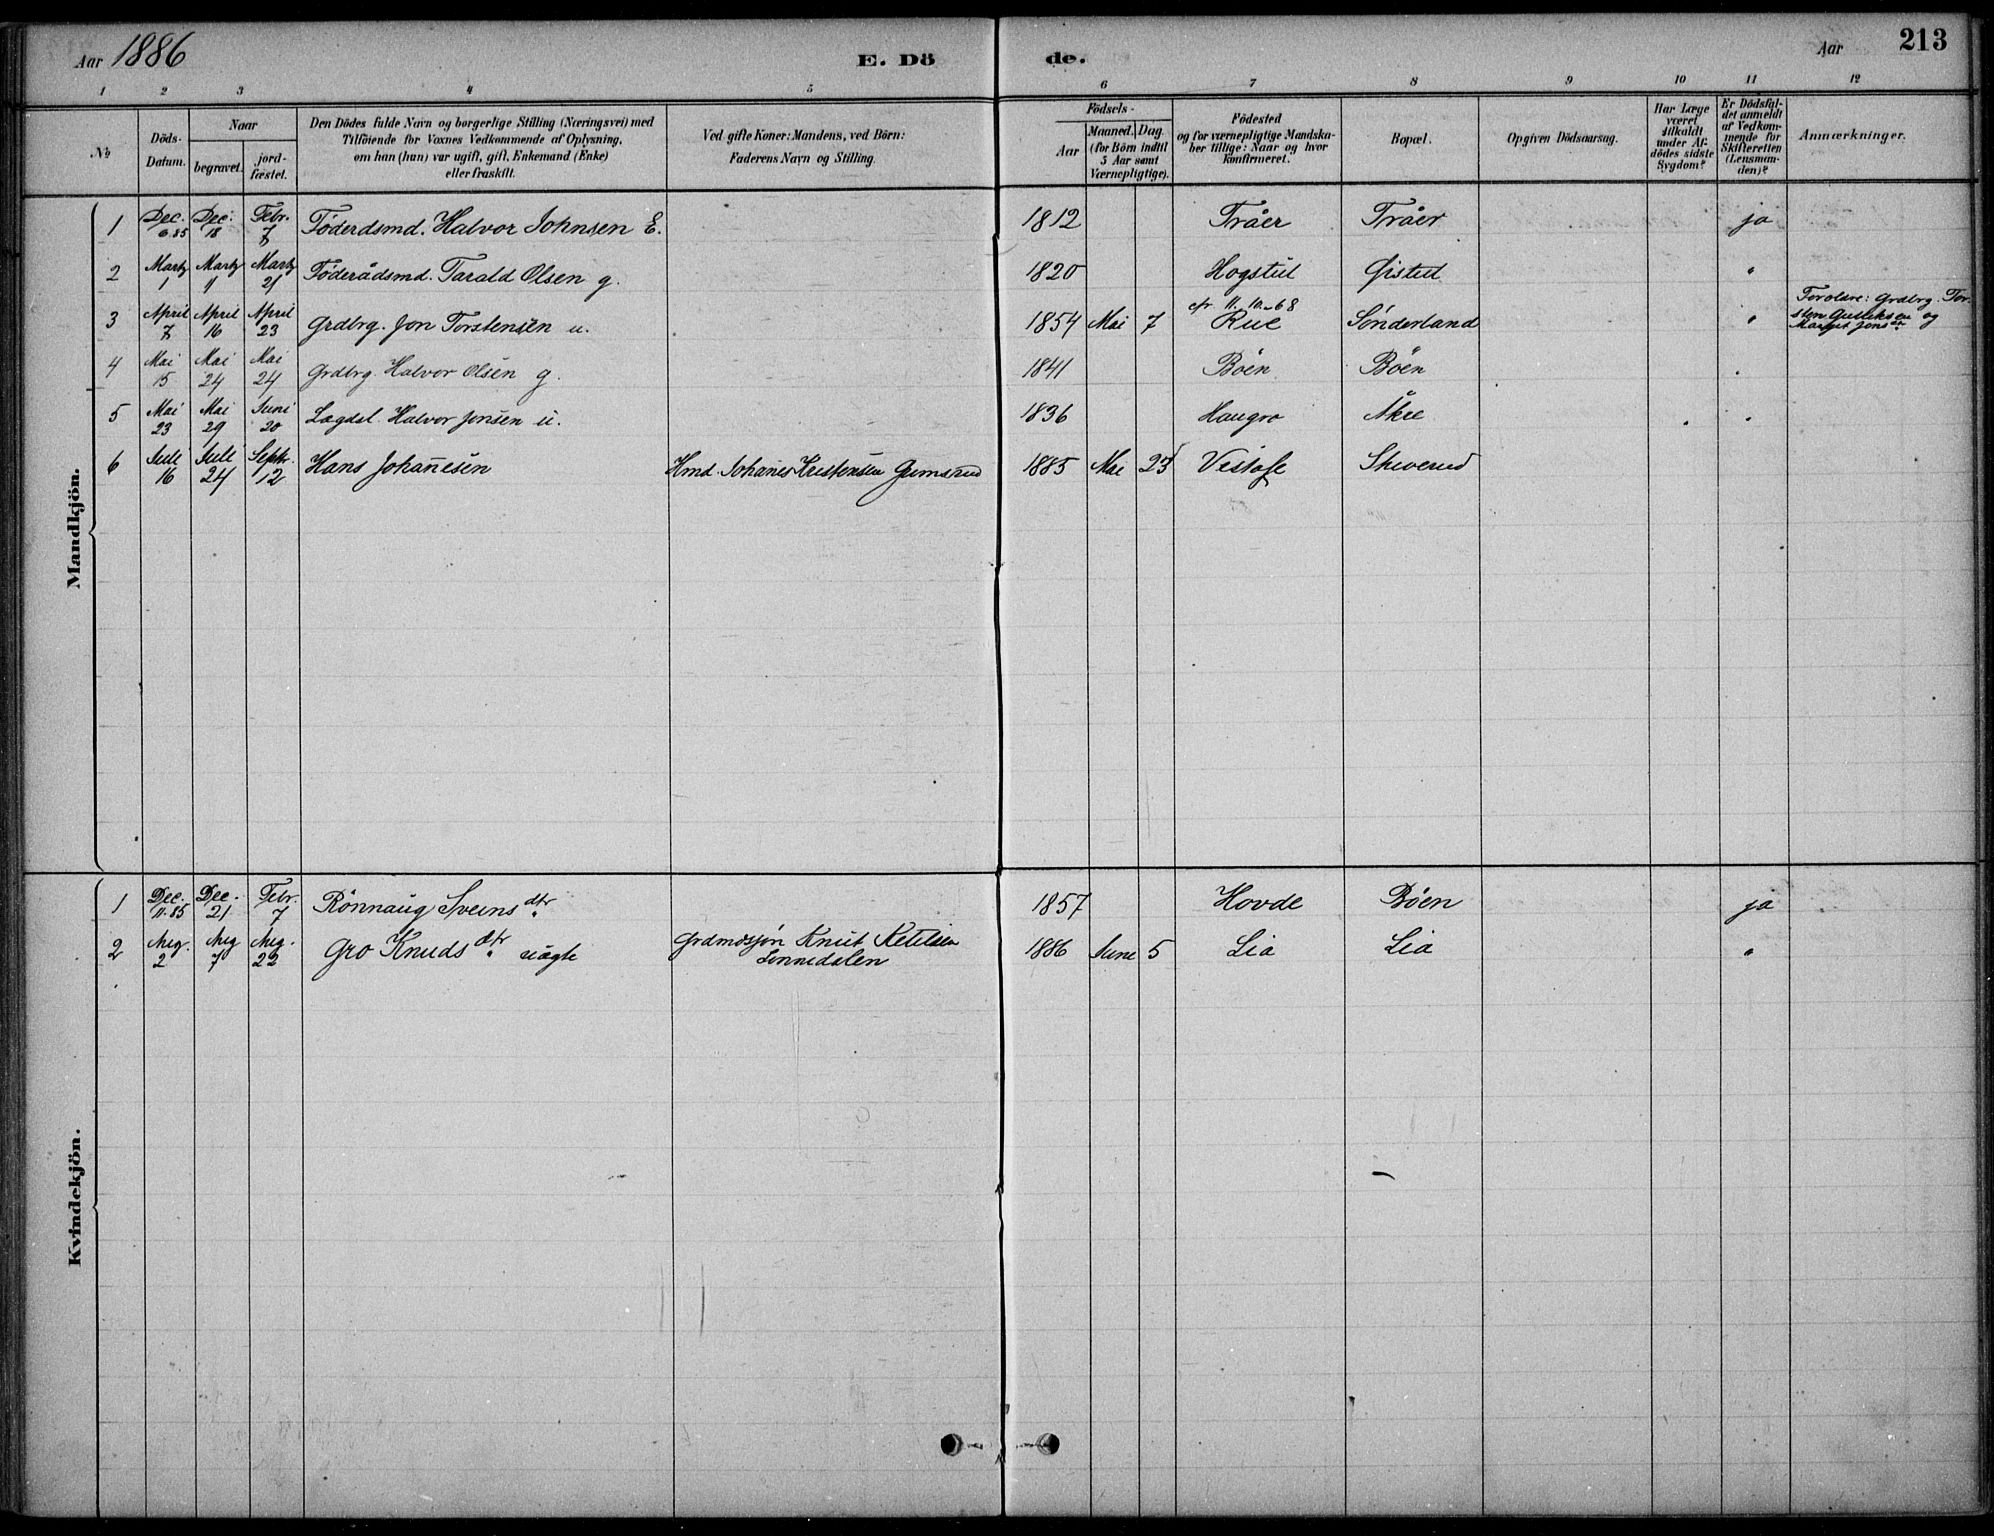 Aar 1886 E. Dö de. Aar 213
1 2 3 4 5 6 7 8 9 10 11 12
№
Döds-
Datum.
Naar
begravet.
jord-
fæstet.
Den Dödes fulde Navn og borgerlige Stilling (Næringsvei) med
Tilföiende for Voxnes Vedkommende af Oplysning,
om han (hun) var ugift, gift, Enkemand (Enke)
eller fraskilt.
Ved gifte Koner: Mandens, ved Börn:
Faderens Navn og Stilling.
Födsels-
Aar
Maaned. Dag.
(for Börn indtil
5 Aar samt
Værnepligtige).
Födested
og for værnepligtige Mandska-
ber tillige: Naar og hvor
Konfirmeret.
Bopæl.
Opgiven Dödsaarsag.
Har Læge
været
tilkaldt
under Af-
dödes sidste
Sygdom?
Er Dödsfal-
det anmeldt
af Vedkom-
mende for
Skifteretten
(Lensman-
den)?
Anmærkninger.
Mandkjön.
1 Dec. 6.85 Dec. 18 Febr. 7 Föderdsmd. Halvor Johnsen E. 1812 Tråer Tråer ja
2 Marts 1 Marts 11 Marts 21 Föderådsmd. Tarald Olsen g. 1820 Hogstul Öistud "
3 April 7 April 16 April 23 Grdbrg. Jon Torstensen u. 1854 Mai 7 cfr 11.10.68 Rue Sönderland " Foreldre: Grdbrg. Tor-
sten Gulliksen og
Margit Jonsdr
4 Mai 15 Mai 24 Mai 24 Grdbrg. Halvor Olsen g. 1841 Böen Böen "
5 Mai 23 Mai 29 Juni 20 Lagdsl. Halvor Jonsen u. 1836 Haugro Åkre " "
6 Juli 16 Juli 24 Septr. 12 Hans Johannesen Hmd. Johanes Kristensen Gumsrud 1885 Mai 23 Skeverud
Kvindekjön.
1 Dec. 11.85 Dec. 21 Febr. 7 Rönnaug Sveinsdtr 1857 Hovde Böen ja
2 Aug. 2 Aug 7 Aug. 22 Gro Knudsdtr uägte Grdmdssjön Knut Ketilsen
Lonnedalen 1886 June 5 Lia Lia "